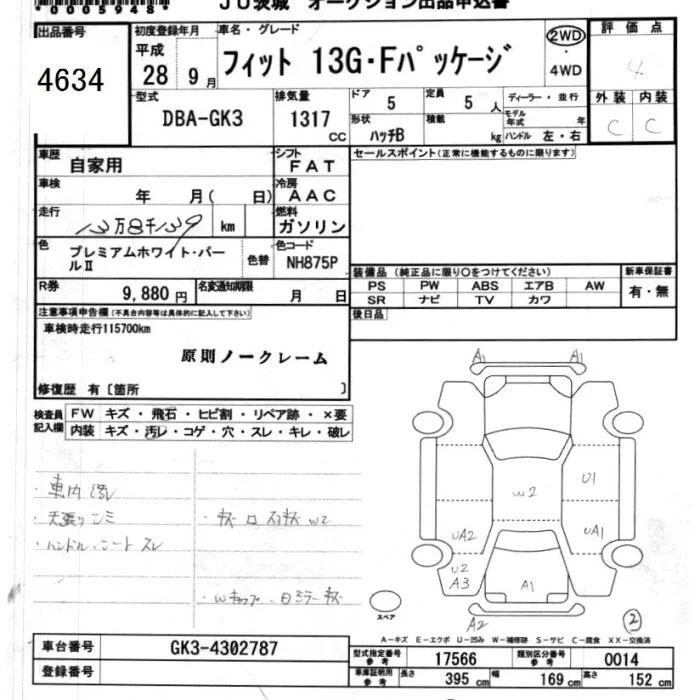 *0005948*
JU茨城 オークション出品申込書
出品番号 4634
初度登録年月 平成 28 9月
車名・グレード フィット 13G・Fパッケージ
2WD・4WD
評価点 4
外装 C 内装 C
型式 DBA-GK3
排気量 1317 CC
ドア 5 定員 5人
形状 ハッチB 積載 kg
ディーラー・並行
モデル年式 年
ハンドル 左・右
車歴 自家用
シフト FAT
セールスポイント(正常に機能するものに限ります)
車検 年 月( 日)
冷房 AAC
走行 13万8千139 km
燃料 ガソリン
色 プレミアムホワイト・パールII
色替
色コード NH875P
装備品 (純正品に限り〇をつけてください)
PS PW ABS エアB AW
SR ナビ TV カワ
新車保証書 有・無
R券 9,880円
名変通知期限 月 日
後日品
注意事項申告欄(不具合内容等は具体的に記入して下さい)
車検時走行115700km
原則ノークレーム
修復歴 有〔箇所 〕
検査員記入欄
FW キズ・飛石・ヒビ割・リペア跡・×要
内装 キズ・汚レ・コゲ・穴・スレ・キレ・破レ
・車内汚レ
・天張りシミ
・ハンドル・シートスレ
A1 A1
W2
U1
UA2
UA1
U2
A3
A1
A2
②
スペア
A-キズ E-エクボ U-凹み W-補修跡 S-サビ C-腐食 XX-交換済
車台番号 GK3-4302787
登録番号
型式指定番号 参考 17566
類別区分番号 参考 0014
車庫証明用 参考 長さ 395 cm 幅 169 cm 高さ 152 cm